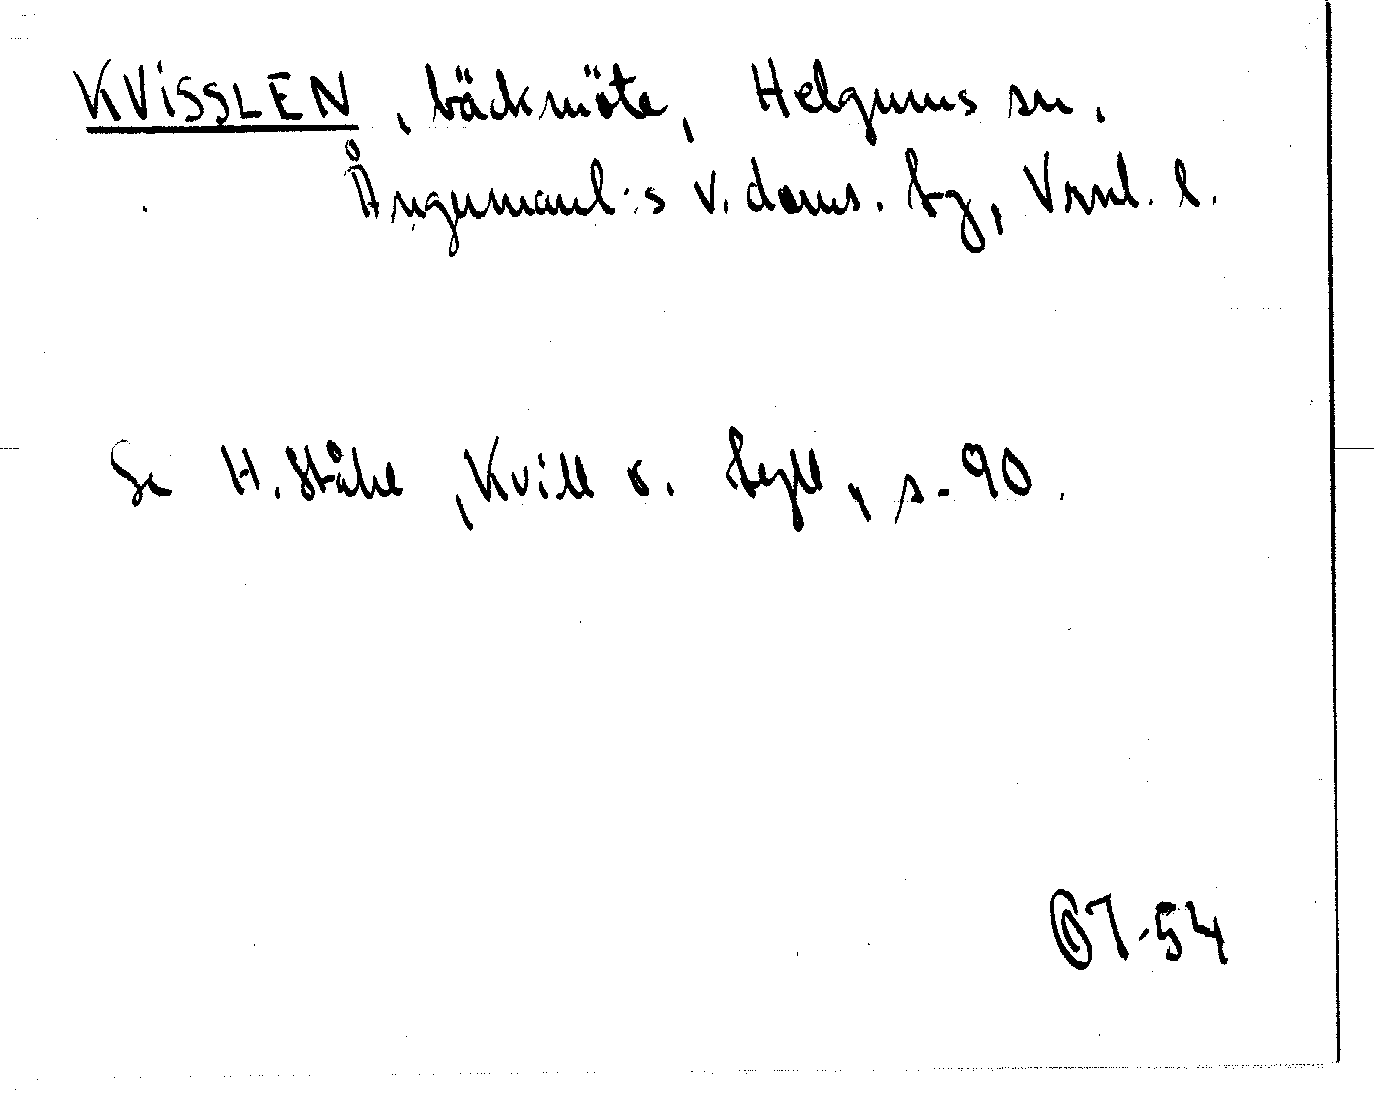 KVISSLEN, bäckmöte, Helgums sn.
Ångermanl:s v. doms. tg, Vrnl. l.
Se H. Ståhl, Kvill o. tyll, s. 90.
OT-54